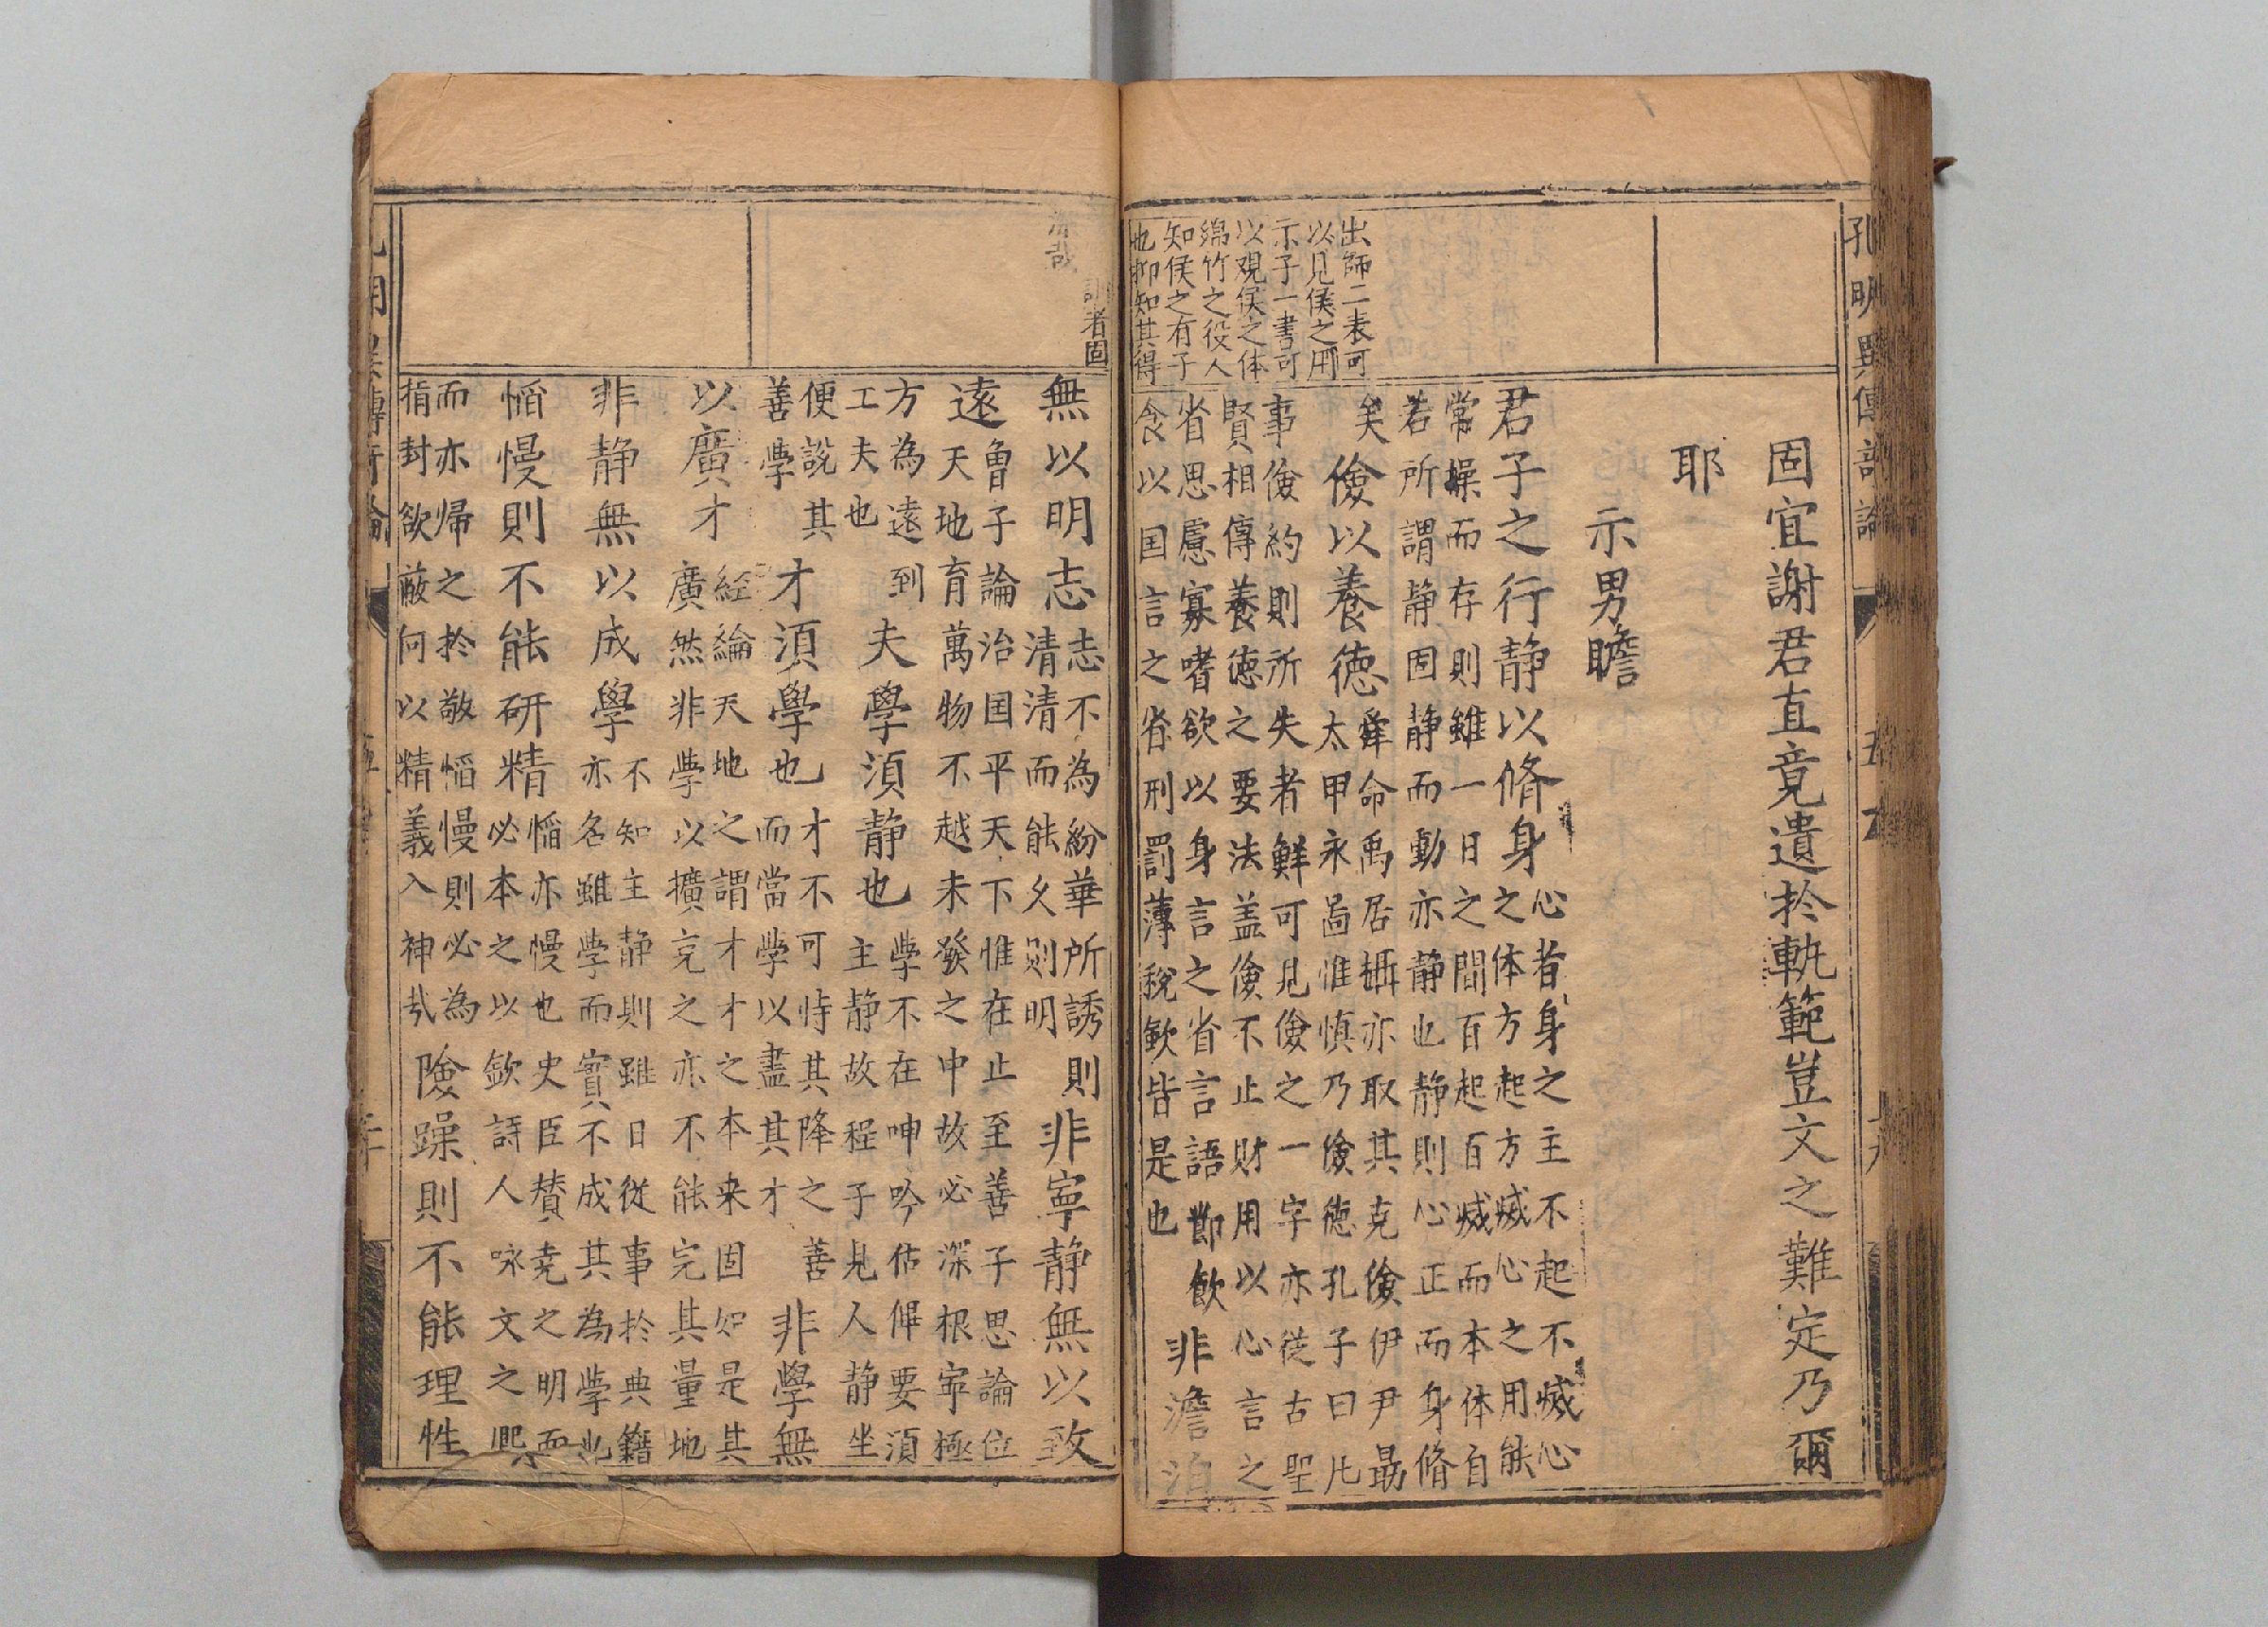 孔明異傳
出師二表可
以見侯之用
示子一書可
以觀侯之体
綿竹之役人
知侯之有子
也抑知其得
固宜謝君直竟遺於軌範豈文之難定乃爾
耶
示男瞻
君子之行静以脩身
心者身之主不起不滅心
之体方起方滅心之用能
常操而存則雖一日之間百起百滅而本体自
若所謂静固静而動亦静也静則心正而身脩
矣
儉以養德
舜命禹居攝亦取其克儉伊尹最
太甲永啚惟慎乃儉德孔子曰凡
事儉約則所失者鮮可見儉之一字亦従古聖
賢相傳養德之要法盖儉不止財用以心言之
省思慮寡嗜欲以身言之省言語節飲
食以国言之省刑罰薄稅歛皆是也
非澹泊
者固
無以明志
志不為紛華所誘則
清清而能久則明
非寧静無以致
遠
曾子論治国平天下惟在止至善子思論位
天地育萬物不越未發之中故必深根寧極
方為遠到
工夫也
夫學須静也
學不在呻吟佔俾要須
主静故程子見人静坐
便說其
善學
才須學也
才不可恃其降之善
而當學以盡其才
非學無
以廣才
經綸天地之謂才才之本来固如是其
廣然非學以擴充之亦不能完其量地
非静無以成學
不知主静則雖日從事於典籍
亦名雖學而實不成其為學也
慆慢則不能研精
慆亦慢也史臣賛尭之明而
必本之以欽詩人咏文之熙
而亦帰之於敬慆慢則必為
指封欲蔽何以精義入神㢤
險躁則不能理性